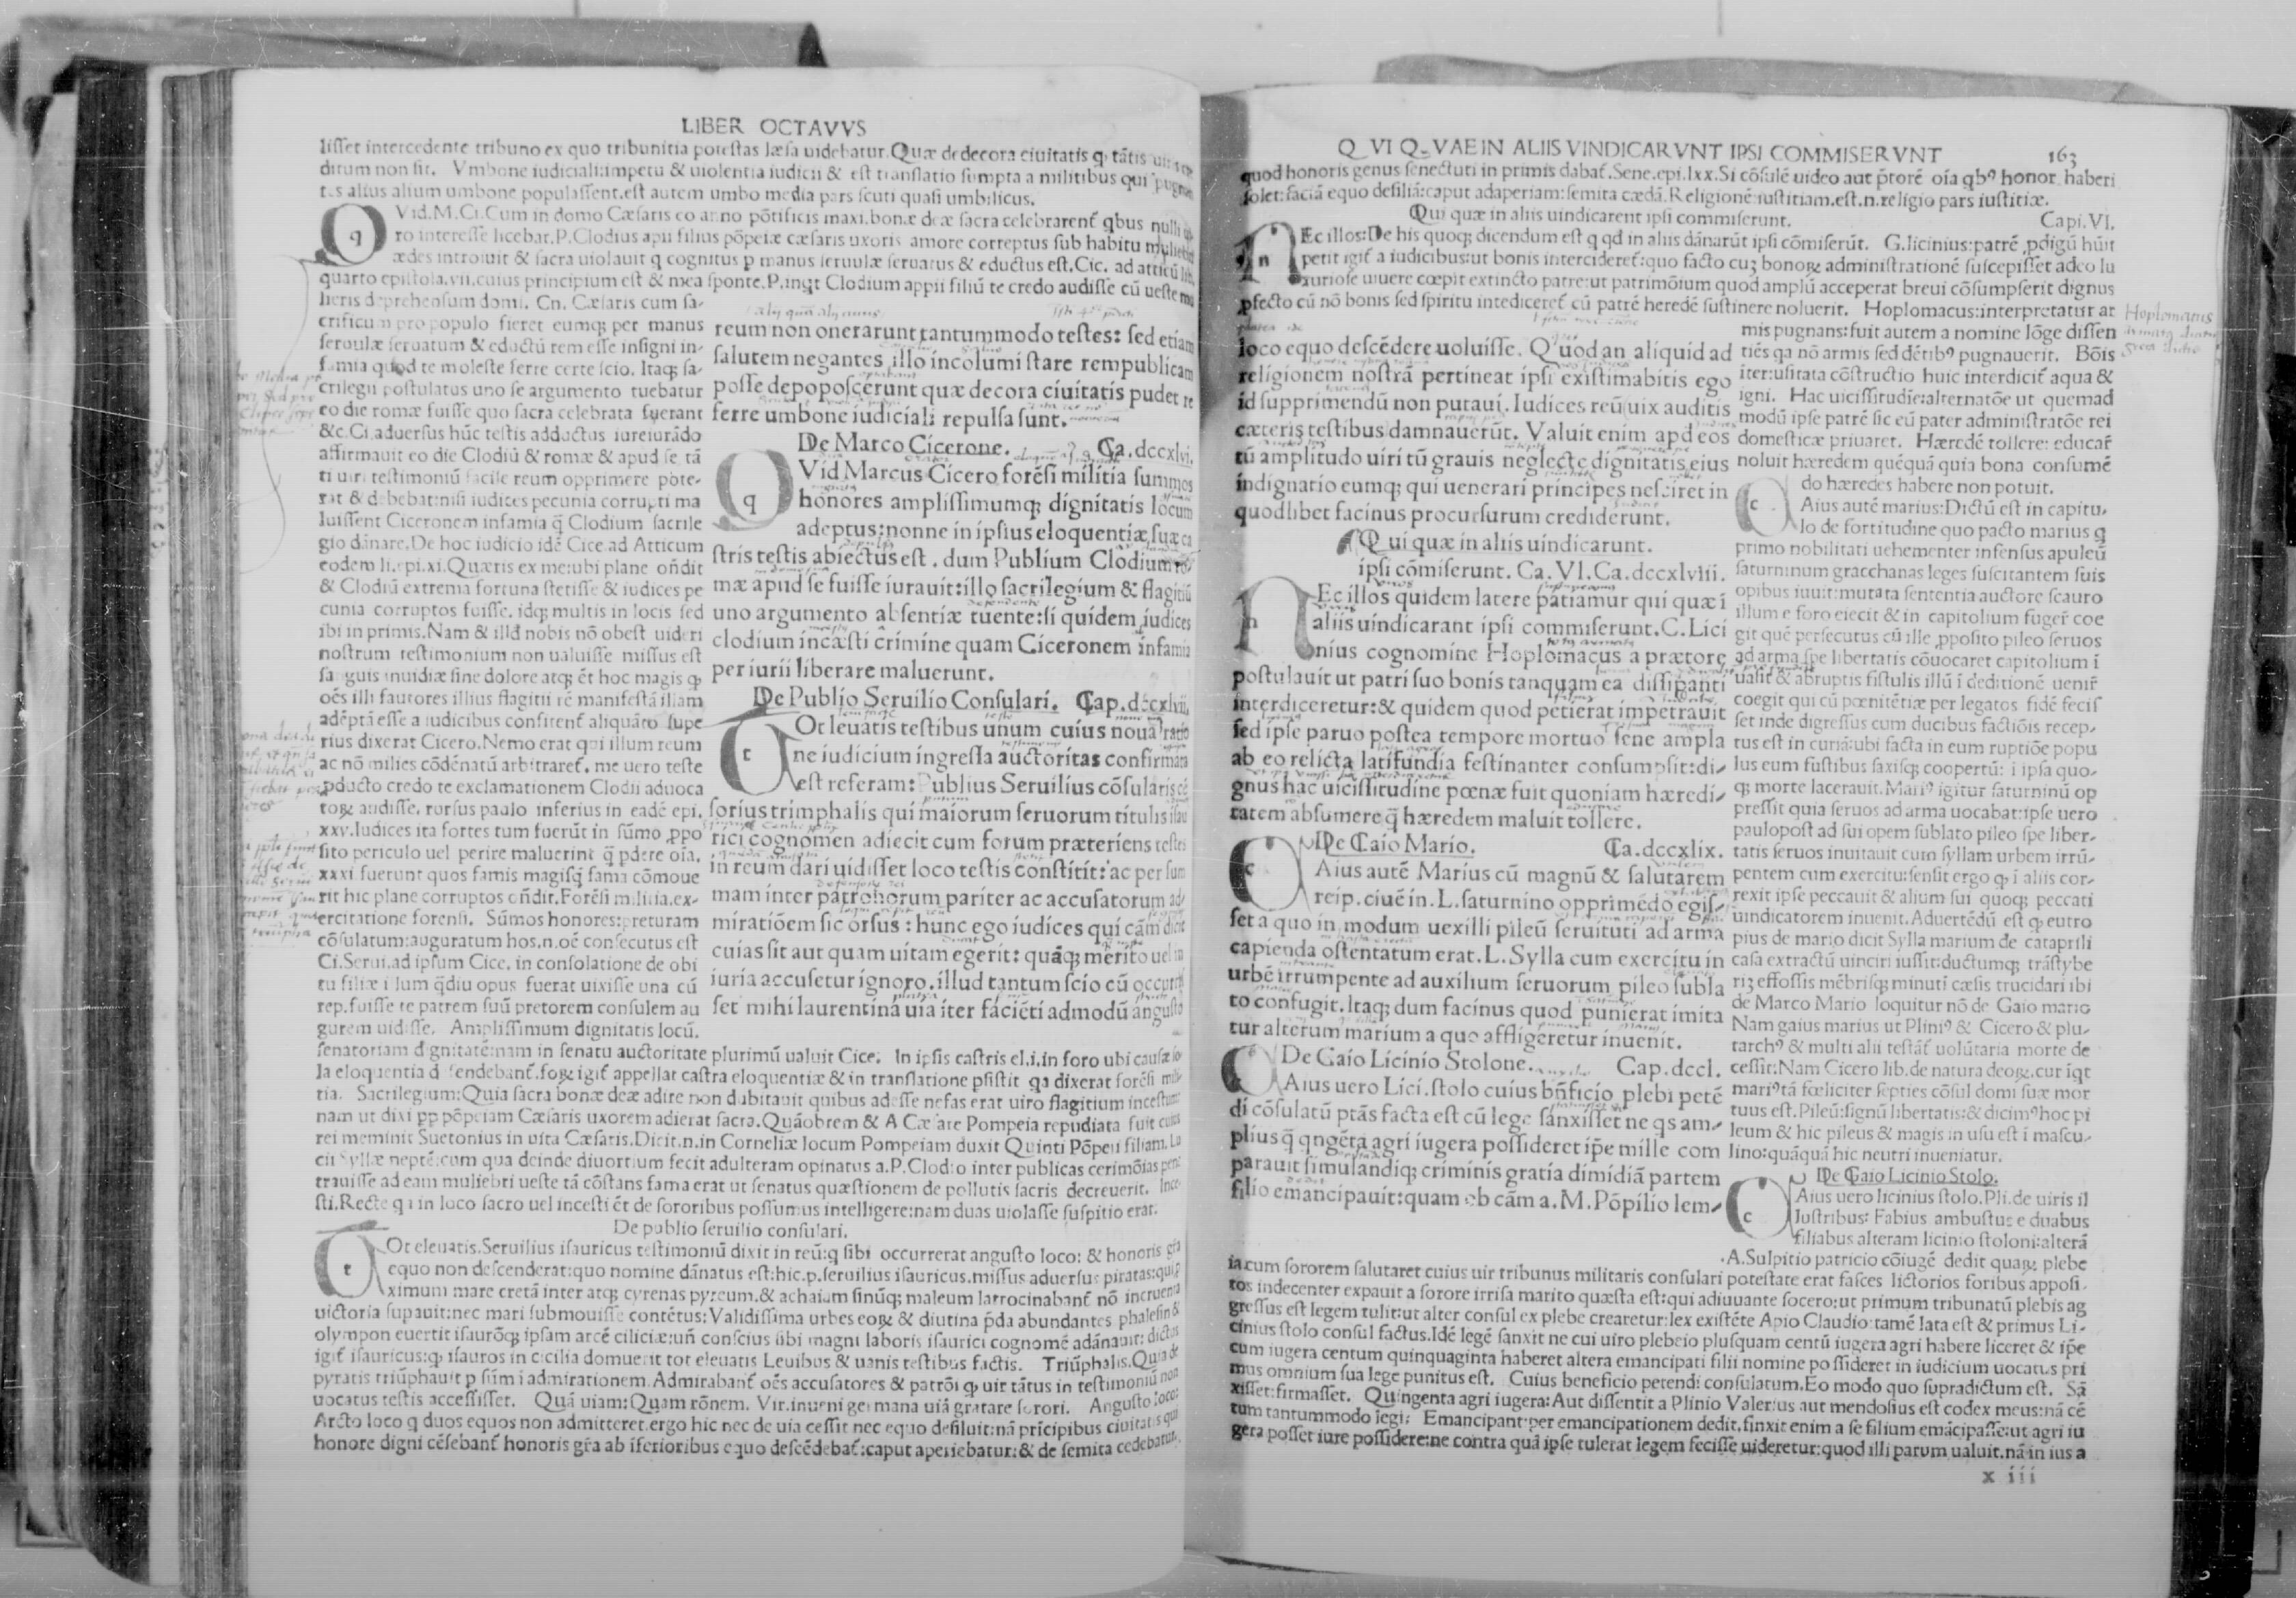 LIBER OCTAVVS
lisset intercedente tribuno ex quo tribunitia potestas læsa uidebatur. Quæ dedecora ciuitatis q tātis
ditum non sit. Vmbone iudiciali: impetu & uiolentia iudicii & est translatio sumpta a militibus qui pugnan
tes alius alium umbone populassent. est autem umbo media pars scuti quasi umbilicus.
QVid. M. Ci. Cum in domo Cæsaris eo anno pōtificis maxi. bonæ deæ sacra celebrarent̄ qbus nulli
ro interesse licebat. P. Clodius apii filius pōpeiæ cæsaris uxoris amore correptus sub habitu muliebri
ædes introiuit & sacra uiolauit q cognitus p manus seruulæ seruatus & eductus est. Cic. ad atticū
quarto epistola. vii. cuius principium est & mea sponte. P. inqt Clodium appii filiū te credo audisse cū ueste mu
lieris deprehensum domi. Cn. Cæsaris cum sa-
crificum pro populo fieret eumq; per manus
seruulæ seruatum & eductū rem esse insigni in-
famia quod te moleste ferre certe scio. Itaq; sa-
crilegii postulatus uno se argumento tuebatur
eo die romæ fuisse quo sacra celebrata fuerant
&c. Ci. aduersus hūc testis adductus iureiurādo
affirmauit eo die Clodiū & romæ & apud se tā
ti uiri testimoniū facile reum opprimere pote-
rat & debebat: nisi iudices pecunia corrupti ma
luissent Ciceronem infamia q̄ Clodium sacrile
gio dānare. De hoc iudicio idē Cice. ad Atticum
eodem li. epi. xi. Quæris ex me: ubi plane oñdit
& Clodiū extrema fortuna stetisse & iudices pe
cunia corruptos fuisse. idq; multis in locis sed
ibi in primis. Nam & illđ nobis nō obest uideri
nostrum testimonium non ualuisse missus est
sanguis inuidiæ sine dolore atq; ēt hoc magis q
oēs illi fautores illius flagitii rē manifestā illam
adēptā esse a iudicibus confitent̄ aliquāto supe
rius dixerat Cicero. Nemo erat qui illum reum
ac nō milies cōdēnatū arbitraret̄. me uero teste
pducto credo te exclamationem Clodii aduoca
toꝝ audisse. rursus paulo inferius in eadē epi.
xxv. Iudices ita fortes tum fuerūt in sūmo ppo
sito periculo uel perire maluerint q̄ pdere oīa.
xxxi fuerunt quos famis magisq̄ fama cōmoue
rit hic plane corruptos oñdit. Forēsi militia. ex-
ercitatione forensi. Sūmos honores: preturam
cōsulatum: auguratum hos. n. oē consecutus est
Ci. Serui. ad ipsum Cice. in consolatione de obi
tu filiæ illum q̄diu opus fuerat uixisse una cū
rep. fuisse te patrem suū pretorem consulem au
gurem uidisse. Amplissimum dignitatis locū.
reum non onerarunt tantummodo testes: sed etiam
salutem negantes illo incolumi stare rempublicam
posse depoposcerunt quæ decora ciuitatis pudet re
ferre umbone iudiciali repulsa sunt.
De Marco Cicerone. Ca. dccxlvi.
QVid Marcus Cicero forēsi militia summos
honores amplissimumq; dignitatis locum
adeptus: nonne in ipsius eloquentiæ suæ ca
stris testis abiectus est. dum Publium Clodium ro
mæ apud se fuisse iurauit: illo sacrilegium & flagitiū
uno argumento absentiæ tuente: si quidem iudices
clodium incæsti crimine quam Ciceronem infamia
periurii liberare maluerunt.
De Publio Seruilio Consulari. Cap. dccxlvii.
TOt leuatis testibus unum cuius noua ratio
ne iudicium ingressa auctoritas confirmata
est referam: Publius Seruilius cōsularis cē
sorius trimphalis qui maiorum seruorum titulis isau
rici cognomen adiecit cum forum præteriens testes
in reum dari uidisset loco testis constitit: ac per sum
mam inter patronorum pariter ac accusatorum ad
miratiōem sic orsus: hunc ego iudices qui cām dicit
cuias sit aut quam uitam egerit: quāq; merito uel in
iuria accusetur ignoro. illud tantum scio cū occurris
set mihi laurentina uia iter faciēti admodū angusto
senatoriam dignitatē: nam in senatu auctoritate plurimū ualuit Cice. In ipsis castris el. i. in foro ubi causæ so
la eloquentia defendebant̄. foꝝ igit̄ appellat castra eloquentiæ & in translatione psistit qa dixerat forēsi mili
tia. Sacrilegium: Quia sacra bonæ deæ adire non dubitauit quibus adesse nefas erat uiro flagitium incestum
nam ut dixi pp pōpeiam Cæsaris uxorem adierat sacra. Quāobrem & A Cæsare Pompeia repudiata fuit cuius
rei meminit Suetonius in uita Cæsaris. Dicit. n. in Corneliæ locum Pompeiam duxit Quinti Pōpeii filiam. Lu
cii Syllæ neptē: cum qua deinde diuortium fecit adulteram opinatus a. P. Clodio inter publicas cerimōias pene
trauisse ad eam muliebri ueste tā cōstans fama erat ut senatus quæstionem de pollutis sacris decreuerit. Ince-
sti. Recte qa in loco sacro uel incesti ēt de sororibus possumus intelligere: nam duas uiolasse suspitio erat.
De publio seruilio consulari.
TOt eleuatis. Seruilius isauricus testimoniū dixit in reū: q sibi occurrerat angusto loco: & honoris gřa
equo non descenderat: quo nomine dānatus est: hic. p. seruilius isauricus. missus aduersus piratas: qui p
ximum mare cretā inter atq; cyrenas pyreum. & achaiam sinūq; maleum latrocinabant̄ nō incruenta
uictoria supauit: nec mari submouisse contētus: Validissima urbes eoꝝ & diutina p̄da abundantes phalesin &
olympon euertit isaurōq; ipsam arcē ciliciæ: uñ conscius sibi magni laboris isaurici cognomē adāmauit: dictus
igit̄ isauricus: q isauros in cicilia domuerit tot eleuatis Leuibus & uanis testibus factis. Triūphalis. Quia de
pyratis triūphauit p sūm i admirationem. Admirabant̄ oēs accusatores & patrōi q uir tātus in testimoniū non
uocatus testis accessisset. Quā uiam: Quam rōnem. Vir. inueni germana uiā gratare sorori. Angusto loco:
Arcto loco q duos equos non admitteret. ergo hic nec de uia cessit nec equo desiluit: nā prīcipibus ciuitatis qui
honore digni cēsebant̄ honoris gřa ab īferioribus equo descēdebat̄: caput aperiebatur: & de semita cedebatur.
Q VI Q-VAE IN ALIIS VINDICARVNT IPSI COMMISERVNT 163
quod honoris genus senectuti in primis dabat̄. Sene. epi. lxx. Si cōsulē uideo aut p̄torē oīa qbꝰ honor haberi
solet: faciā equo desiliā: caput adaperiam: semita cædā. Religionē: iustitiam. est. n. religio pars iustitiæ.
Qui quæ in aliis uindicarent ipsi commiserunt. Capi. VI.
NEc illos: De his quoq; dicendum est q qd in aliis dānarūt ipsi cōmiserūt. G. licinius: patrē pdigū hūit
petit igit̄ a iudicibus: ut bonis intercideret̄: quo facto cuꝫ bonoꝝ administrationē suscepisset adeo lu
xuriose uiuere cœpit extincto patre: ut patrimōium quod amplū acceperat breui cōsumpserit dignus
pfecto cū nō bonis sed spiritu intediceret̄ cū patrē heredē sustinere noluerit. Hoplomacus: interpretatur ar
Hoplomacus
loco equo descēdere uoluisse. Quod an aliquid ad
religionem nostrā pertineat ipsi existimabitis ego
id supprimendū non putaui. Iudices reū uix auditis
cæteris testibus damnauerūt. Valuit enim apđ eos
tū amplitudo uiri tū grauis neglecte dignitatis eius
indignatio eumq; qui uenerari principes nesciret in
quodlibet facinus procursurum crediderunt.
Qui quæ in aliis uindicarunt.
ipsi cōmiserunt. Ca. VI. Ca. dccxlviii.
NEc illos quidem latere patiamur qui quæ ī
aliis uindicarant ipsi commiserunt. C. Lici
nius cognomine Hoplomacus a prætore
postulauit ut patri suo bonis tanquam ea dissipanti
interdiceretur: & quidem quod petierat impetrauit
sed ipse paruo postea tempore mortuo sene ampla
ab eo relicta latifundia festinanter consumpsit: di-
gnus hac uicissitudine pœnæ fuit quoniam hæredi-
tatem absumere q̄ hæredem maluit tollere.
De Caio Mario. Ca. dccxlix.
CAius autē Marius cū magnū & salutarem
reip. ciuē in. L. saturnino opprimēdo egis-
set a quo in modum uexilli pileū seruituti ad arma
capienda ostentatum erat. L. Sylla cum exercitu in
urbē irrumpente ad auxilium seruorum pileo subla
to confugit. Itaq; dum facinus quod punierat imita
tur alterum marium a quo affligeretur inuenit.
De Gaio Licinio Stolone. Cap. dccl.
CAius uero Lici. stolo cuius bñficio plebi petē
di cōsulatū ptās facta est cū lege sanxisset ne qs am-
plius q̄ qngēta agri iugera possideret ip̄e mille com
parauit simulandiq; criminis gratia dimidiā partem
filio emancipauit: quam ob cām a. M. Pōpilio lem-
mis pugnans: fuit autem a nomine lōge dissen
tiēs qa nō armis sed dētibꝰ pugnauerit. Bōis
iter: usitata cōstructio huic interdicit̄ aqua &
igni. Hac uicissitudie: alternatōe ut quemad
modū ipse patrē sic eū pater administratōe rei
domesticæ priuaret. Hæredē tollere: educar̄
noluit hæredem quēquā quia bona consumē
do hæredes habere non potuit.
CAius autē marius: Dictū est in capitu-
lo de fortitudine quo pacto marius q
primo nobilitati uehementer infensus apuleū
saturninum gracchanas leges suscitantem suis
opibus iuuit: mutata sententia auctore scauro
illum e foro eiecit & in capitolium fuger̄ coe
git quē persecutus cū ille pposito pileo seruos
ad arma spe libertatis cōuocaret capitolium ī
uasit & abruptis fistulis illū ī deditionē uenir̄
coegit qui cū pœnitētiæ per legatos fidē fecis
set inde digressus cum ducibus factiōis recep-
tus est in curiā: ubi facta in eum ruptiōe popu
lus eum fustibus saxisq; coopertū: i ipsa quo-
q; morte lacerauit. Mariꝰ igitur saturninū op
pressit quia seruos ad arma uocabat: ipse uero
paulopost ad sui opem sublato pileo spe liber-
tatis seruos inuitauit cum syllam urbem irrū-
pentem cum exercitu: sensit ergo q i aliis cor-
rexit ipse peccauit & alium sui quoq; peccati
uindicatorem inuenit. Aduertēdū est q eutro
pius de mario dicit Sylla marium de cataprili
casa extractū uinciri iussit: ductumq; trāstybe
riꝫ effossis mēbrisq; minuti cæsis trucidari ibi
de Marco Mario loquitur nō de Gaio mario
Nam gaius marius ut Pliniꝰ & Cicero & plu-
tarchꝰ & multi alii testāt̄ uolūtaria morte de
cessit: Nam Cicero lib. de natura deoꝝ. cur iqt
mariꝰ tā fœliciter septies cōsul domi suæ mor
tuus est. Pileū: signū libertatis: & dicimꝰ hoc pi
leum & hic pileus & magis in usu est i mascu-
lino: quāquā hic neutri inueniatur.
De Gaio Licinio Stolo.
CAius uero licinius stolo. Pli. de uiris il
lustribus: Fabius ambustus e duabus
filiabus alteram licinio stoloni: alterā
A. Sulpitio patricio cōiugē dedit quaꝝ plebe
ia. cum sororem salutaret cuius uir tribunus militaris consulari potestate erat fasces lictorios foribus apposi-
tos indecenter expauit a sorore irrisa marito quæsta est: qui adiuuante socero: ut primum tribunatū plebis ag
gressus est legem tulit: ut alter consul ex plebe crearetur: lex existēte Apio Claudio: tamē lata est & primus Li-
cinius stolo consul factus. Idē legē sanxit ne cui uiro plebeio plusquam centū iugera agri habere liceret & ip̄e
cum iugera centum quinquaginta haberet altera emancipati filii nomine possideret in iudicium uocatus pri
mus omnium sua lege punitus est. Cuius beneficio petendi consulatum. Eo modo quo supradictum est. Sā
xisset: firmasset. Quingenta agri iugera: Aut dissentit a Plinio Valerius aut mendosius est codex meus: nā cē
tum tantummodo legi: Emancipant: per emancipationem dedit. finxit enim a se filium emācipasse: ut agri iu
gera posset iure possidere: ne contra quā ipse tulerat legem fecisse uideretur: quod illi parum ualuit. nā in ius a
x iii